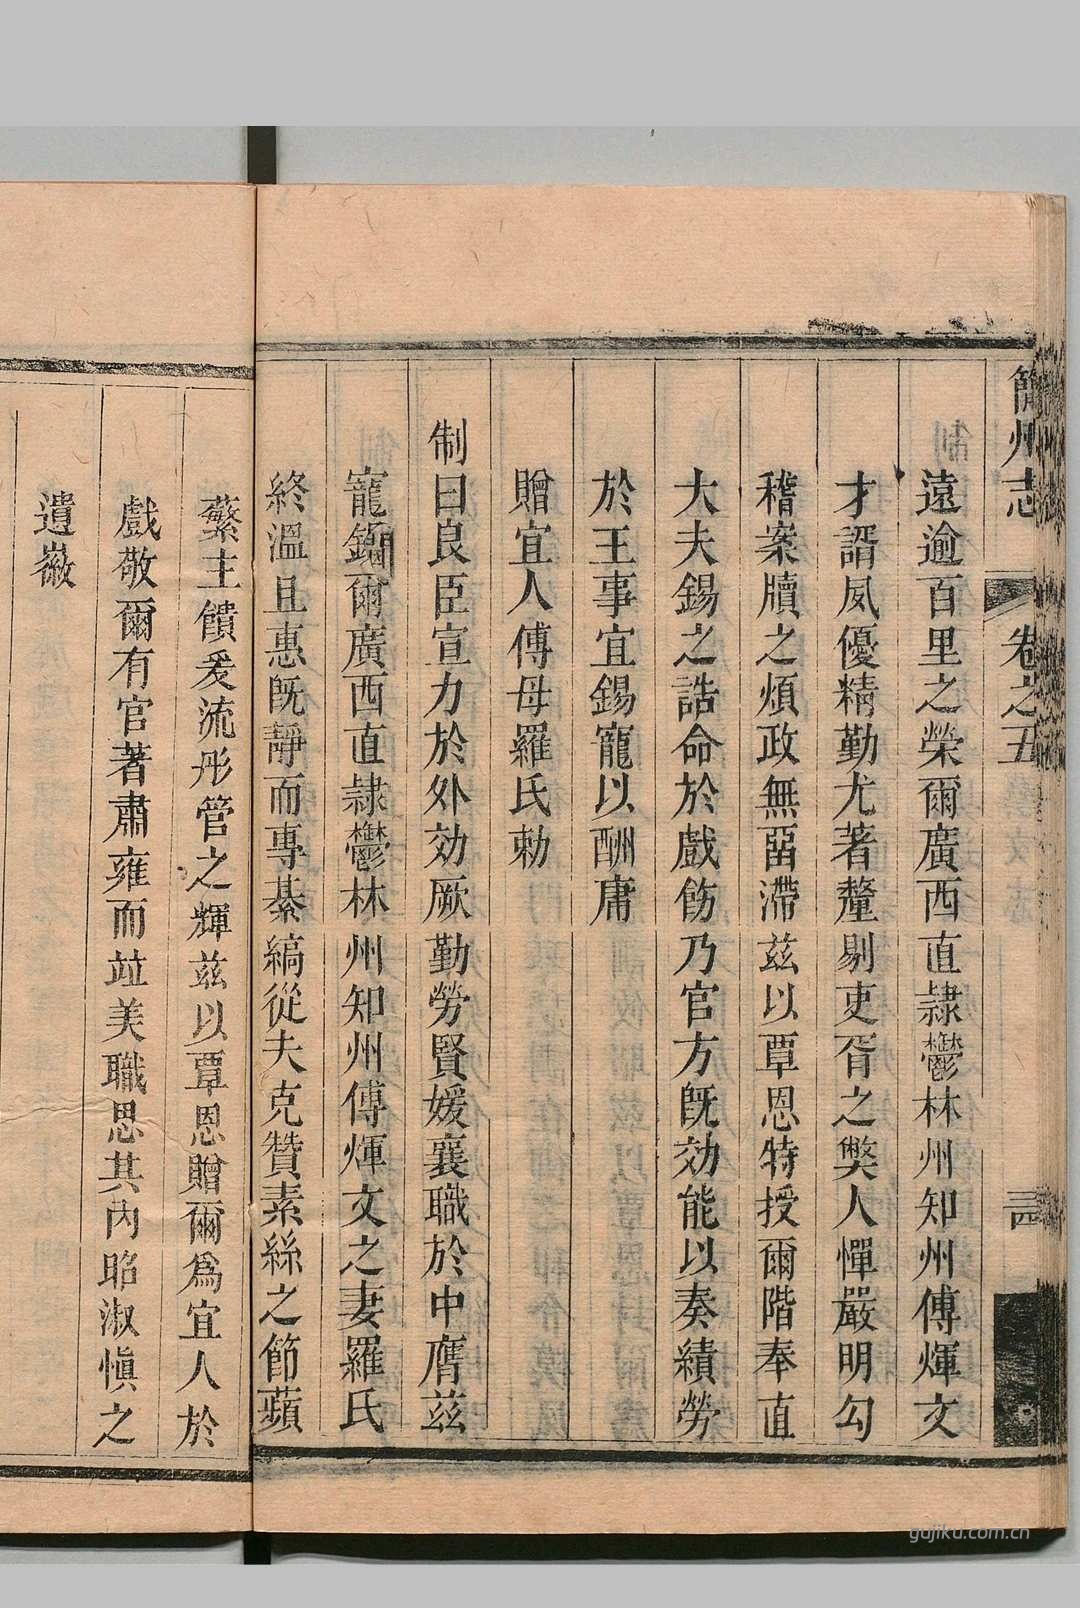 簡州志 卷之五 三四
遠逾百里之榮爾廣西直隷鬱林州知州傅煇文
才諝夙優精勤尤著釐剔吏胥之獘人憚嚴明勾
稽案牘之煩政無畱滯兹以覃恩特授爾階奉直
大夫錫之誥命於戲飭乃官方旣効能以奏績勞
於王事宜錫寵以酬庸
贈宜人傅母羅氏勅
制曰良臣宣力於外効厥勤勞賢媛襄職於中膺兹
寵錫爾廣西直隷鬱林州知州傅煇文之妻羅氏
終溫且惠旣靜而專綦縞從夫克贊素絲之節蘋
蘩主饋爰流彤管之輝兹以覃恩贈爾爲宜人於
戲敬爾有官著肅雍而竝美職思其內昭淑愼之
遺徽
gujiku.com.cn